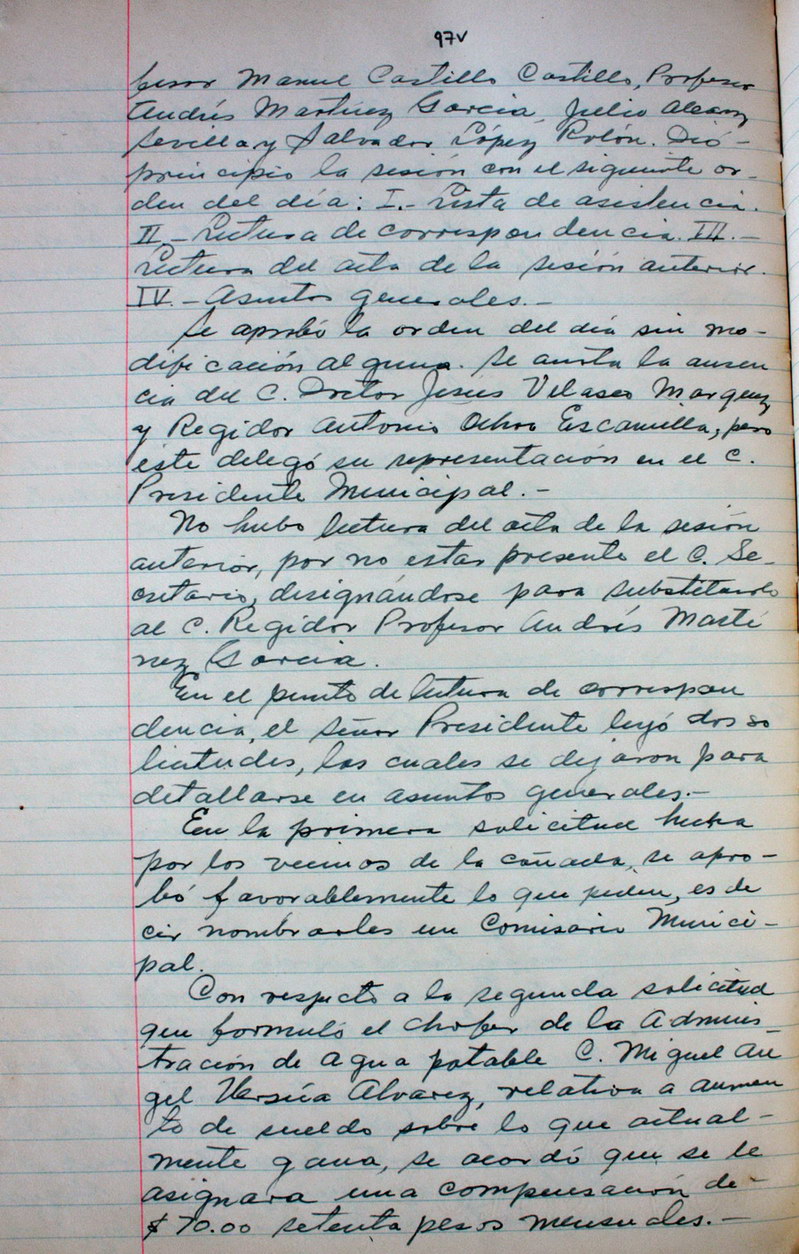 97v
fesor Manuel Castillo Castillo, Profesor
Andrés Martínez Garcia, Julio Alcaraz
Sevilla y Salvador López Rolón. Dió-
principio la sesión con el siguiente or-
den del día: I.- Lista de asistencia.
II.- Lectura de correspondencia. III.-
Lectura del acta de la sesión anterior.
IV.- Asuntos generales.-
Se aprobó la orden del día sin mo-
dificación alguna. Se anota la ausen
cia del C. Doctor Jesús Velasco Marquez
y Regidor Antonio Ochoa Escamilla, pero
éste delegó su representación en el C.
Presidente Municipal.-
No hubo lectura del acta de la sesión
anterior, por no estar presente el C. Se-
cretario, designándose para substituirlo
al C. Regidor Profesor Andrés Martí
nez Garcia.
En el punto de lectura de correspon
dencia, el señor Presidente leyó dos so
licitudes, las cuales se dejaron para
detallarse en asuntos generales.-
En la primera solicitud hecha
por los vecinos de la cañada, se apro-
bó favorablemente lo que piden, es de
cir nombrarles un Comisario Munici-
pal.
Con respecto a la segunda solicitud
que formuló el chofer de la Adminis-
tración de Agua potable C. Miguel An
gel Alvarez, relativa a aumen
to de sueldo sobre lo que actual-
mente gana, se acordó que se le
asignara una compensación de-
$ 70.00 setenta pesos mensuales.-